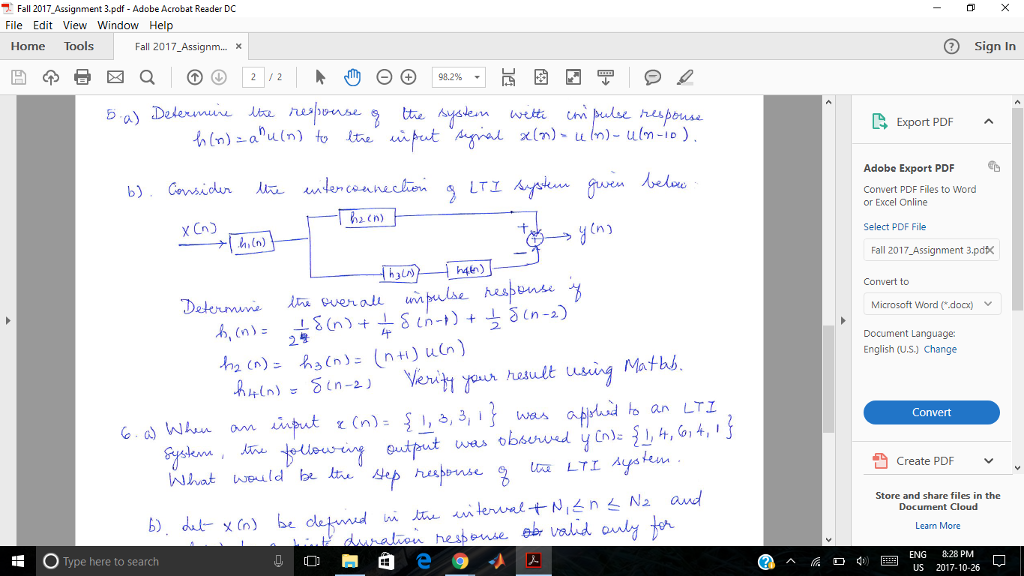 Fall 2017_Assignment 3.pdf - Adobe Acrobat Reader DC
File Edit View Window Help
Home Tools Fall 2017_Assignm... × Sign In
2 / 2 98.2%
5.a) Determine the response of the system with impulse response
h(n) = aⁿu(n) to the input signal x(n) = u(n) - u(n-10).
b). Consider the interconnection of LTI system given below.
x(n) h₁(n) h₂(n) + y(n)
− h₃(n) h₄(n)
Determine the overall impulse response if
h₁(n) = 1/2 δ(n) + 1/4 δ(n-1) + 1/2 δ(n-2)
h₂(n) = h₃(n) = (n+1) u(n)
h₄(n) = δ(n-2) Verify your result using Matlab.
6. a) When an input x(n) = {1, 3, 3, 1} was applied to an LTI
system, the following output was observed y(n) = {1, 4, 6, 4, 1}
What would be the step response of the LTI system.
b) Let x(n) be defined in the interval N₁ ≤ n ≤ N₂ and
duration response valid only for
Export PDF
Adobe Export PDF
Convert PDF Files to Word
or Excel Online
Select PDF File
Fall 2017_Assignment 3.pdf
Convert to
Microsoft Word (*.docx)
Document Language:
English (U.S.) Change
Convert
Create PDF
Store and share files in the
Document Cloud
Learn More
Type here to search
ENG 8:28 PM
US 2017-10-26